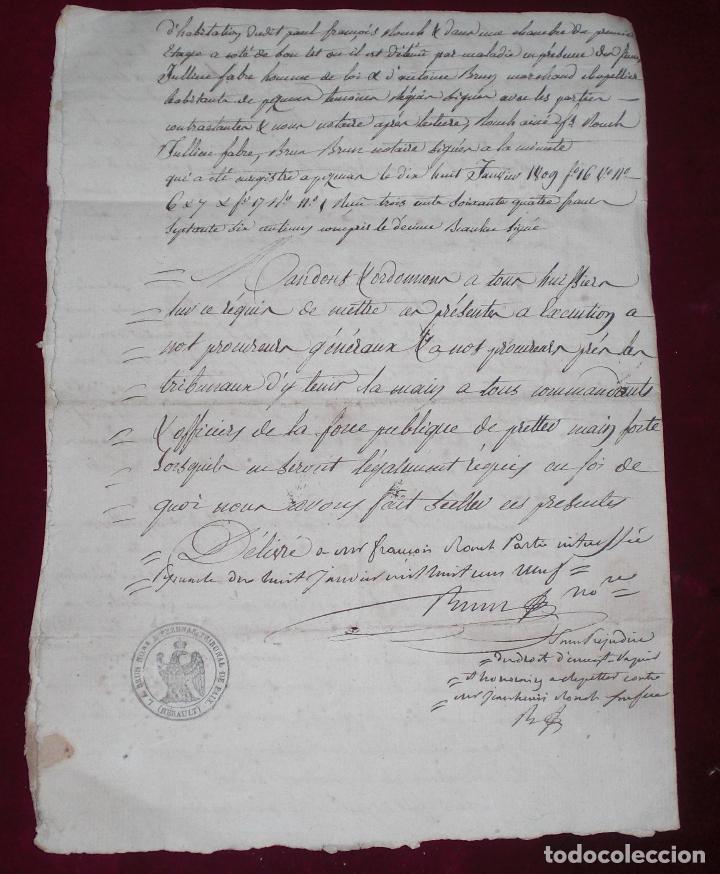 d'habitation dudit paul françois Rouch & dans une chambre du premier
Etage a coté de son lit ou il est détenu par maladie en présence des sieurs
Jullien fabre homme de loi & d'antoine Brun marchand chapellier
habitants de pezenas temoins réquis signés avec les parties
contractantes & nous notaire après lecture, Rouch ainé, Rouch
Jullien fabre, Brun Brun notaire signés a la minute
qui a été enregistré a pezenas le dix huit Janvier 1809 fo 16 Vo No
6 & 7 & fo 17 Ro No 1 Reçu trois cents soixante quatre francs
septante six centimes compris le décime signé
Mandons & ordonnons a tous huissiers
sur ce réquis de mettre ces présentes a Execution a
nos procureurs généraux & a nos procureurs près les
tribunaux d'y tenir la main a tous commandants
& officiers de la force publique de pretter main forte
lorsquils en seront légalement réquis en foi de
quoi nous avons fait sceller ces presentes
Délivré a sieur françois Rouch Partie interessée
Janvier mil huit cens neuf
Brun no re
Sans préjudice
du droit d'enreit
& honoraires a repetter contre
sieur Rouch
L. A. BRUN NORE A PEZENAS, TRIBUNAL DE PAIX (HERAULT)
todocoleccion.net